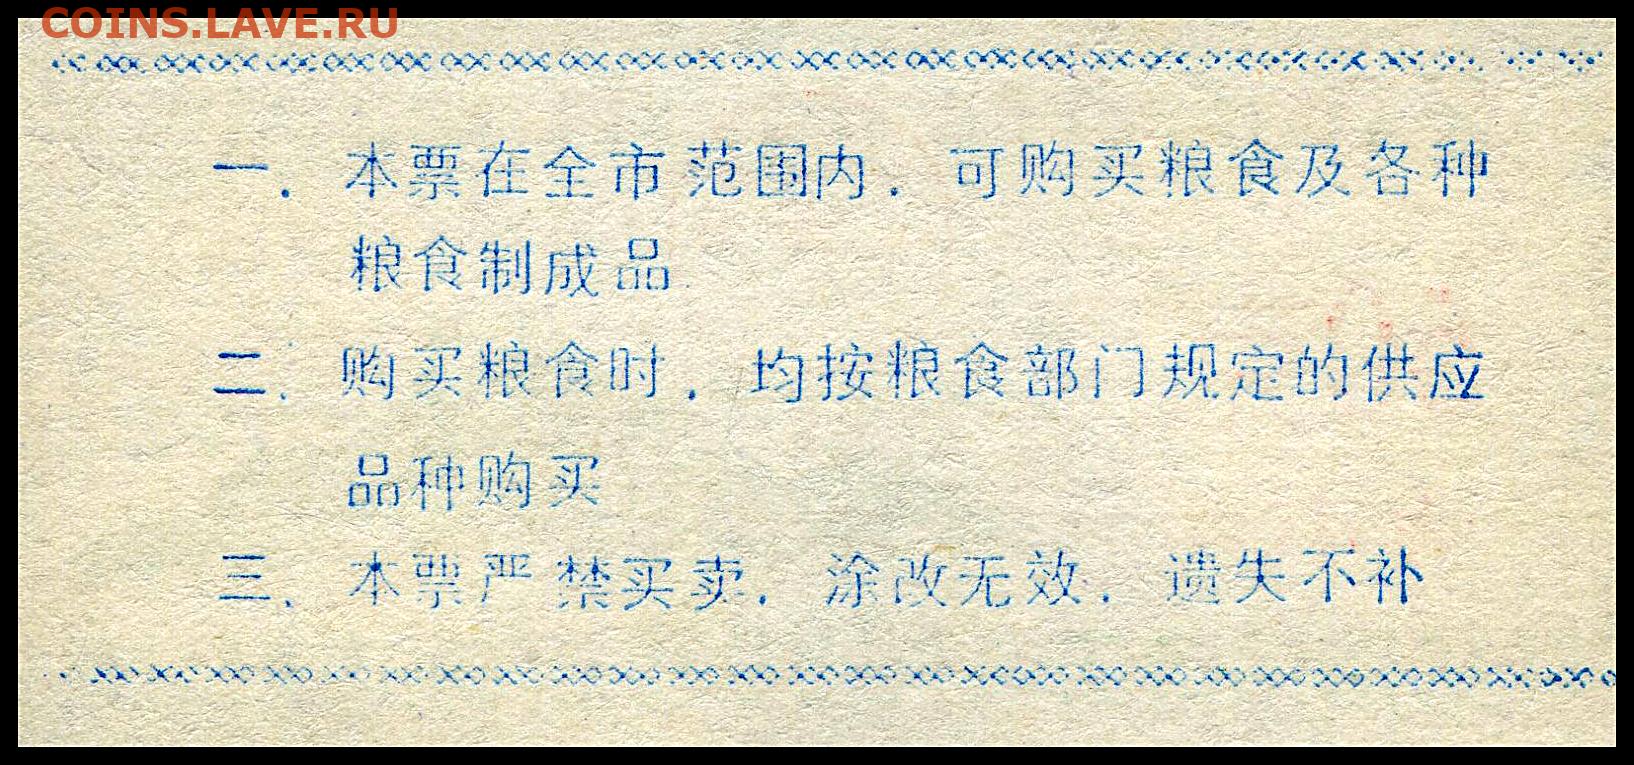 COINS.LAVE.RU
一．本票在全市范围内．可购买粮食及各种
粮食制成品．
二．购买粮食时．均按粮食部门规定的供应
品种购买
三．本票严禁买卖．涂改无效．遗失不补